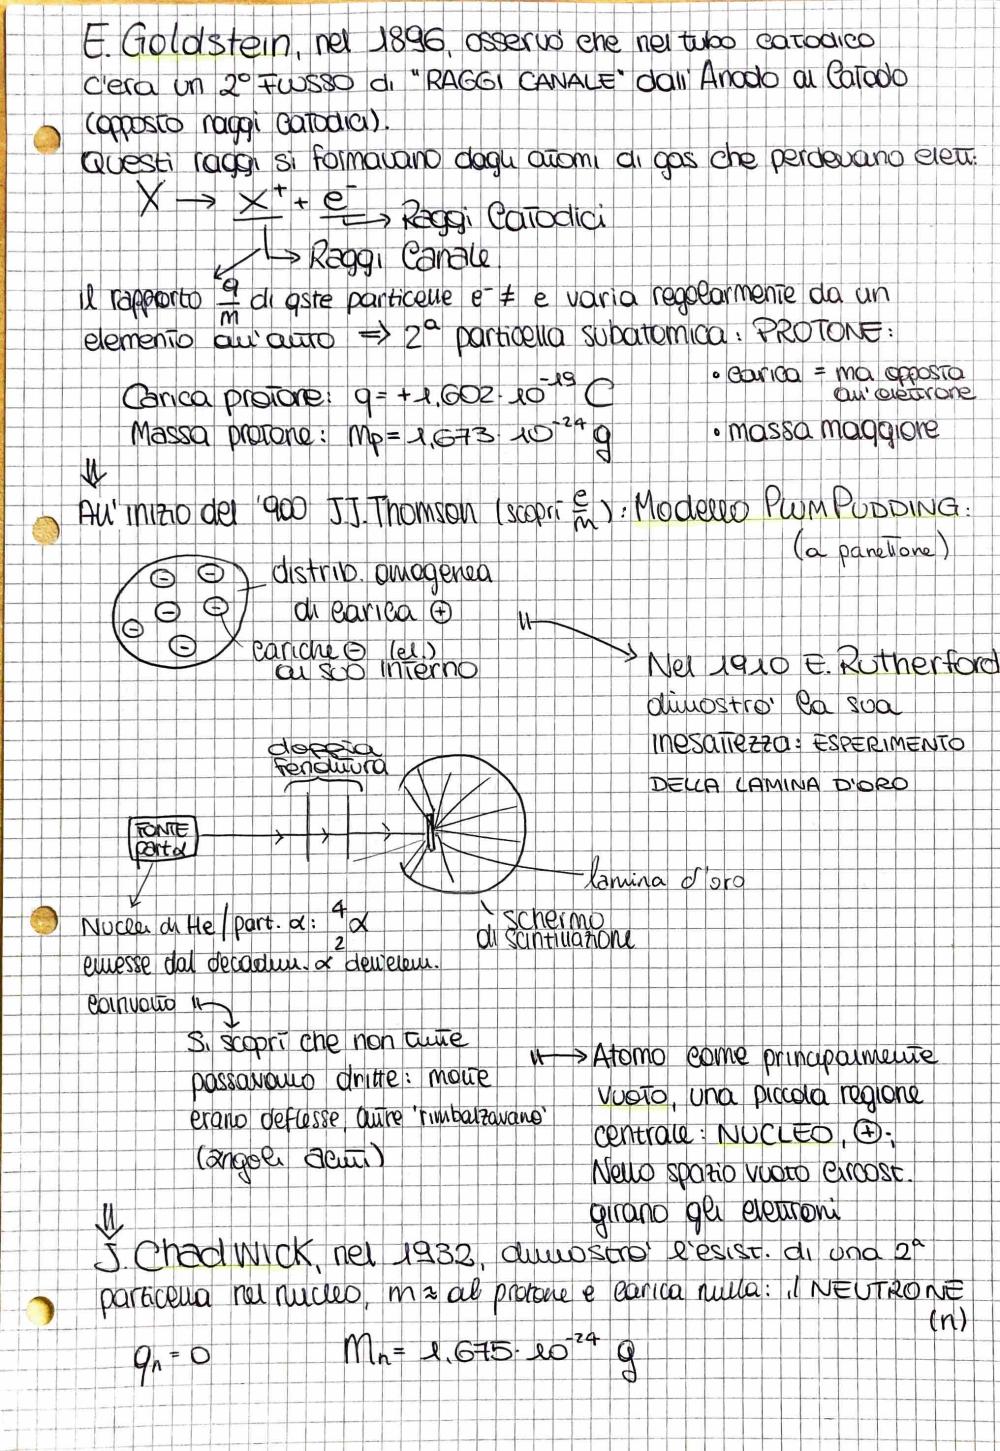 E. Goldstein, nel 1896, osservò che nel tubo catodico
c'era un 2° flusso di "RAGGI CANALE" dall'Anodo al Catodo
(opposto raggi catodici).
Questi raggi si formavano dagli atomi di gas che perdevano elett.
X → X⁺ + e⁻ → Raggi Catodici
→ Raggi Canale
il rapporto q/m di qste particelle e⁻ ≠ e varia regolarmente da un
elemento all'altro ⇒ 2ª particella subatomica: PROTONE:
Carica protone: q = +1,602·10⁻¹⁹ C
Massa protone: Mp = 1,673·10⁻²⁴ g
• carica = ma opposta
all'elettrone
• massa maggiore
⇓
All'inizio del '900 J.J. Thomson (scoprì e/m): Modello PLUM PUDDING:
(a panettone)
distrib. omogenea
di carica ⊕
cariche ⊖ (el.)
al suo interno
Nel 1910 E. Rutherford
dimostrò la sua
inesattezza: ESPERIMENTO
DELLA LAMINA D'ORO
doppia
fenditura
FONTE
part α
lamina d'oro
schermo
di scintillazione
Nuclei di He / part. α: ⁴₂α
emesse dal decadim. α dell'elem.
coinvolto
Si scoprì che non tutte
passavano dritte: molte
erano deflesse, altre 'rimbalzavano'
(angoli acuti)
→ Atomo come principalmente
vuoto, una piccola regione
centrale: NUCLEO, ⊕;
Nello spazio vuoto circost.
girano gli elettroni
⇓
J. Chadwick, nel 1932, dimostrò l'esist. di una 2ª
particella nel nucleo, m ≈ al protone e carica nulla: il NEUTRONE
(n)
qn = 0
Mn = 1,675·10⁻²⁴ g